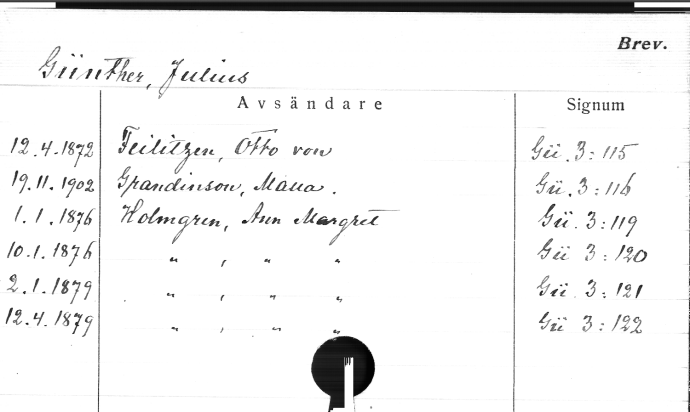 Brev.
Günther, Julius
Avsändare Signum
12.4.1872 Feilitzen, Otto von Gü 3:115
19.11.1902 Grandinson, Gü 3:116
1.1.1876 Holmgren, Ann Margret Gü 3:119
10.1.1876 " , " " Gü 3:120
2.1.1879 " , " " Gü 3:121
12.4.1879 " , " " Gü 3:122